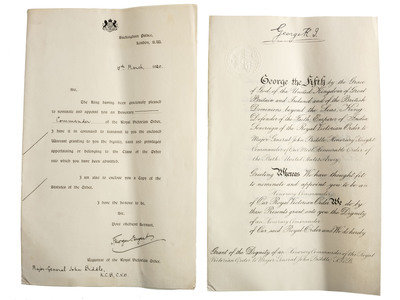 Buckingham Palace,
London, S.W.
March 1920.
Sir,
The King having been graciously pleased
to nominate and appoint you an Honorary
Commander of the Royal Victorian Order,
I have it in command to transmit to you the enclosed
Warrant granting to you the dignity, rank and privileges
appertaining or belonging to the Class of the Order
into which you have been admitted.
I am also to enclose you a Copy of the
Statutes of the Order.
I have the honour to be,
Sir,
Your obedient Servant,
Registrar of the Royal Victorian Order.
Major-General John Biddle,
K.C.M., C.V.O.
George R.I.
George the Fifth by the Grace
of God of the United Kingdom of Great
Britain and Ireland and of the British
Dominions beyond the Seas King
Defender of the Faith, Emperor of India
Sovereign of the Royal Victorian Order to
Major General John Biddle, Honorary Knight
Commander of Our Most Honourable Order of
the Bath
Greeting Whereas We have thought fit
to nominate and appoint you to be an
Honorary Commander
of Our Royal Victorian Order We do by
these Presents grant unto you the Dignity
of an Honorary Commander
of Our said Royal Order and We do hereby
Grant of the Dignity of an Honorary Commander of the Royal
Victorian Order to Major General John Biddle,